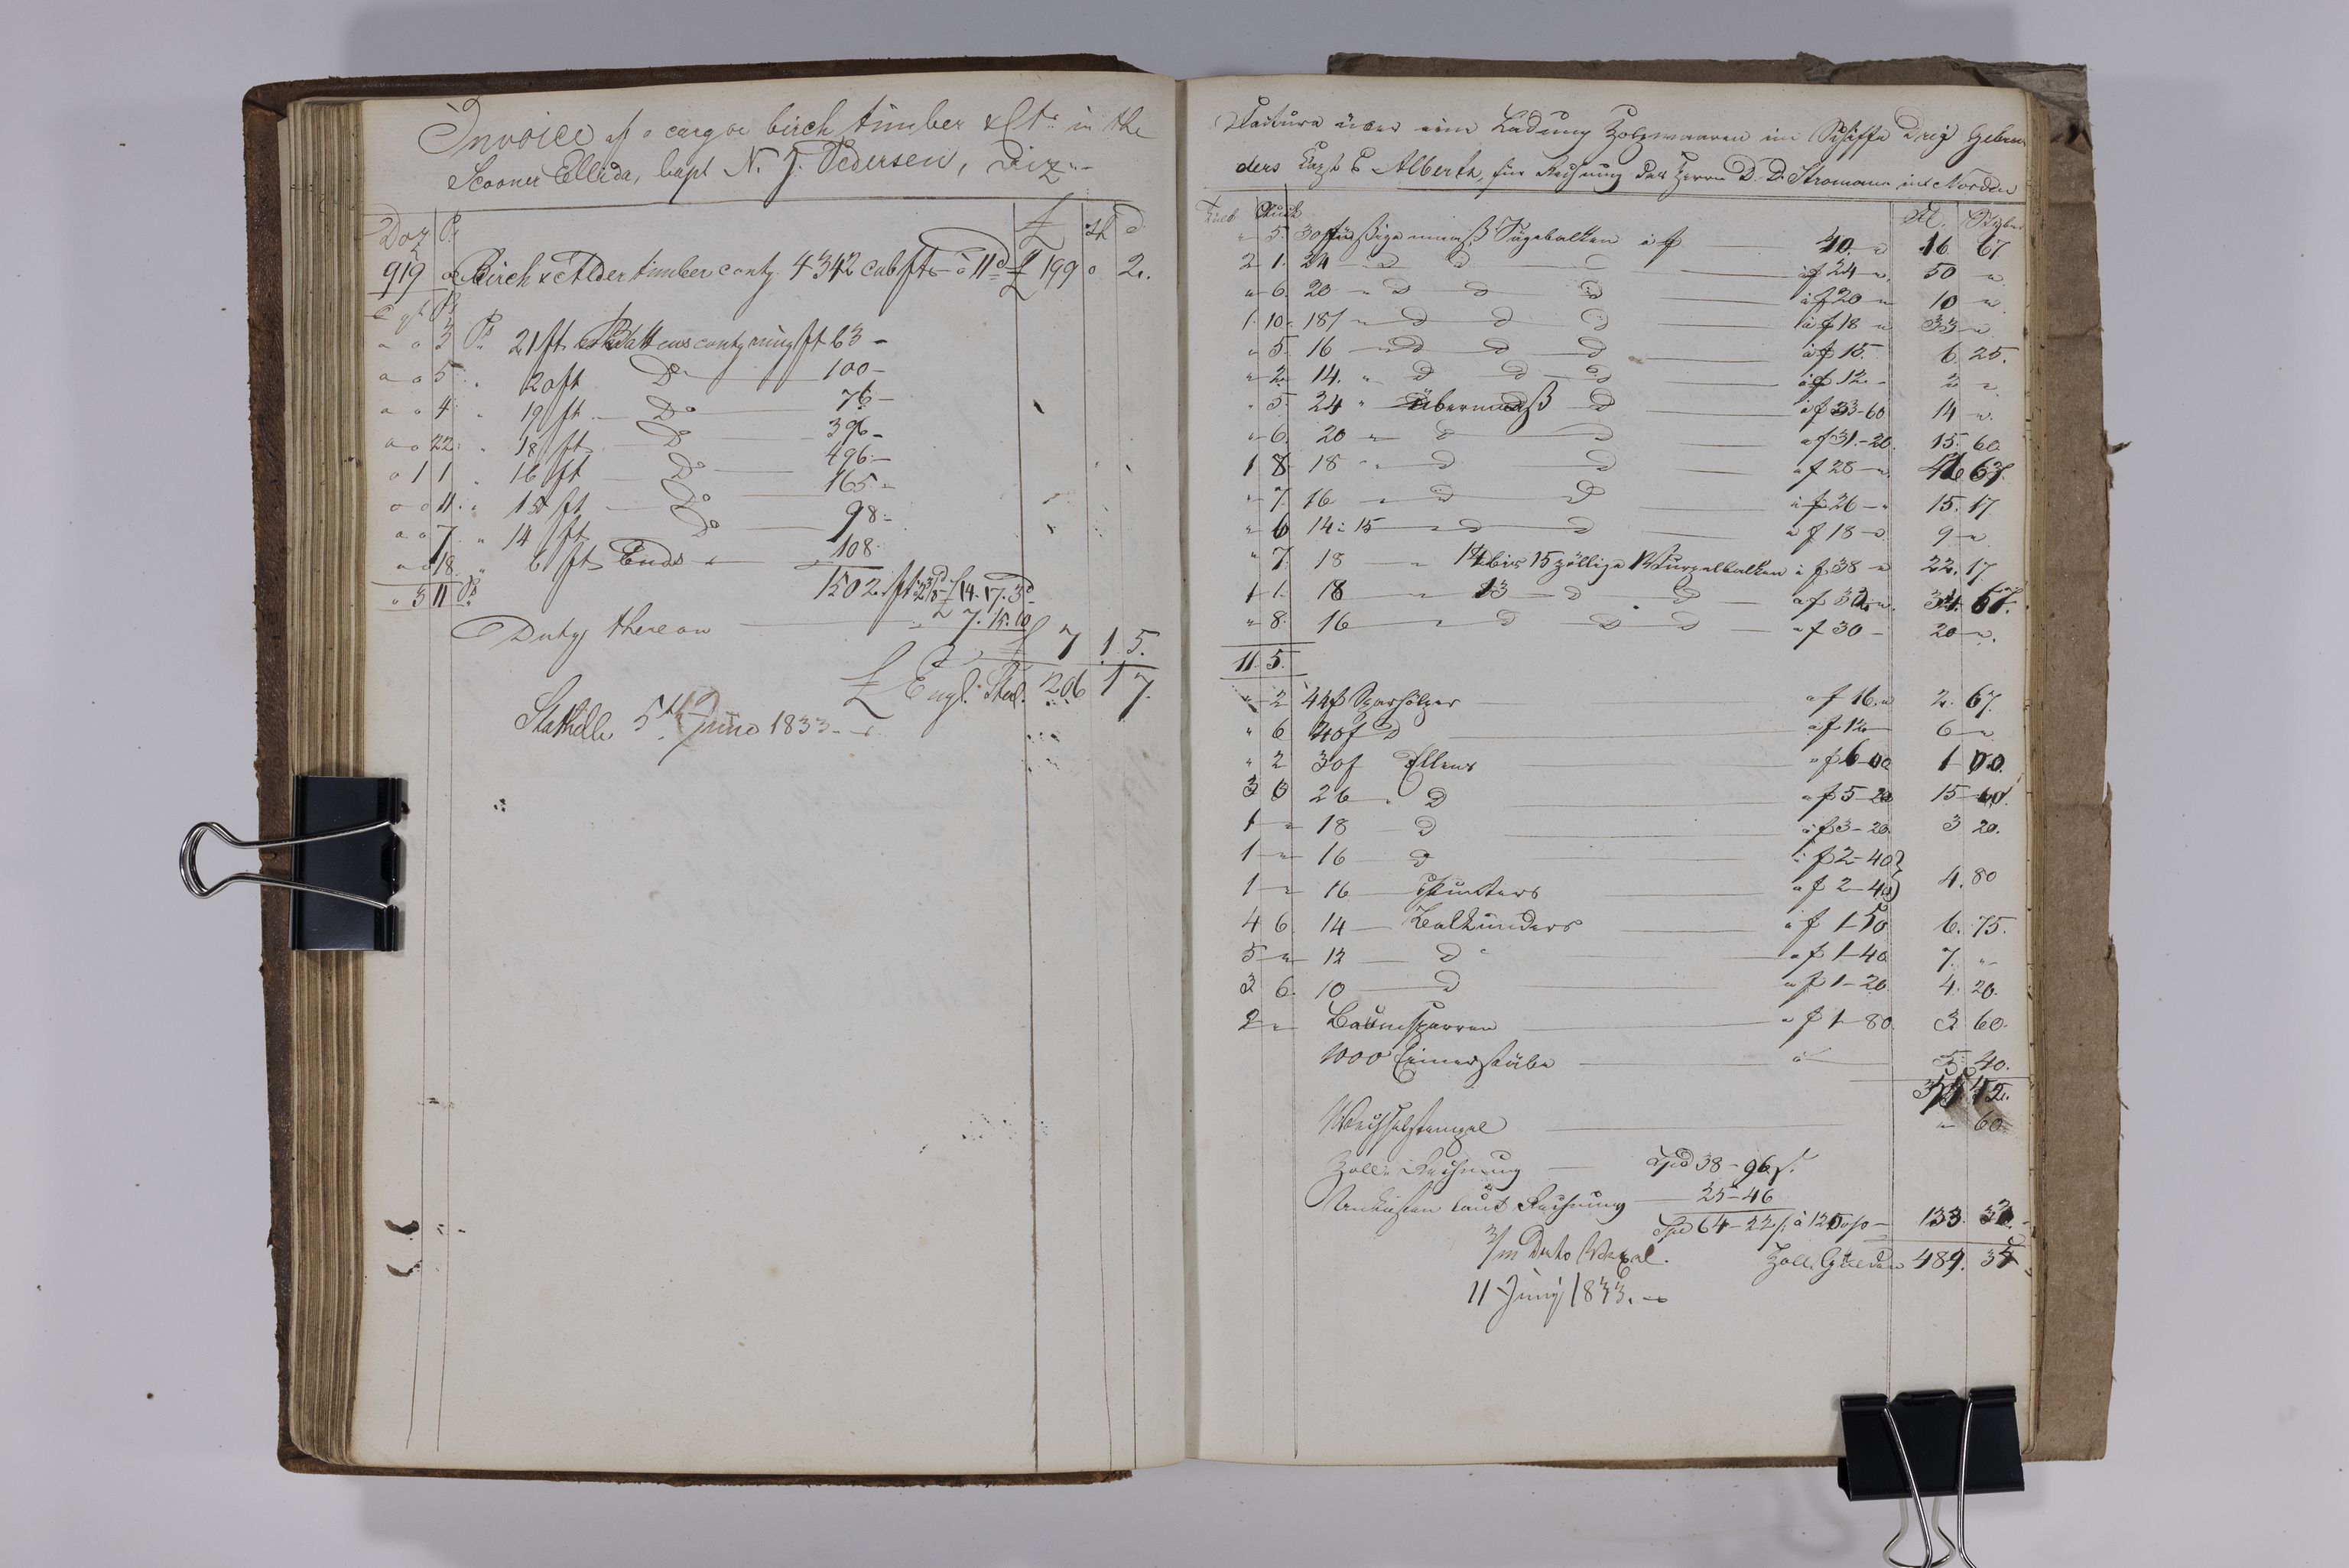 Invoice of a cargoe birch timber & Ct: in the
Scooner Ellida, Capt N. J. Pedersen, Viz:
Doz Ps £ sh d
919 Birch & Alder timber contg 4342 cub fts à 11d £ 199 0 2.
3 Ps 21 ft Battens contg runing ft 63
5 20 ft Do 100
4 19 ft Do 76
22 18 ft Do 396
1 1 16 ft Do 496
11 15 ft Do 165
7 14 ft Do 98
18 6 ft Ends 108
3 11 Ps 1502 ft £ 14. 17. 3d
Duty thereon £ 7. 15. 10
£ 7 1 5.
£ Engl. Sterl. 206 1 7.
Stathelle 5th Juno 1833
Factura über eine Ladung Holzwaaren im Schiffe Drei Gebrü
ders Capt Alberth, für Rechnung des Herrn D. D. Stromann in Norden
Stück
5. 30 füssige Sägebalken à f 40. 16 67
2 1. 24 D D D à f 24 50
6. 20 D D D à f 20 10
1. 10. 18 D D D à f 18 33
5. 16 D D D à f 15. 6. 25.
2. 14. D D D à f 12 2
5. 24 Übermaß D à f 33-60 14
6. 20 D D à f 31-20. 15. 60
1 8 18 D D à f 28 46 67.
7. 16 D D à f 26 15. 17.
6 14 à 15 D D à f 18 9
7. 18 14 bis 15 zöllige Wurzelbalken à f 38 22. 17.
1 1. 18 13 D D à f 32 34. 67.
8. 16 D D D à f 30 20
11 5.
2 44f Sparhölzer à f 16. 2. 67.
6 40f D à f 12 6
2 30f Ellens à f 6-00 1 00.
3 0 26 D à f 5-20 15 60.
1 18 D à f 3-20. 3 20.
1 16 D à f 2-40
1 16 Junkers à f 2-40 4. 80
4 6. 14 Kalkunders à f 1-50 6. 75.
5 12 D à f 1-40 7.
3 6. 10 D à f 1-20. 4. 20.
2 Baumsparren à f 1-80. 3 60.
1000 Eimerstäbe à 5. 40.
Wechselstempel 60
Zoll Rechnung Spd 38-96 s.
Unkosten laut Rechnung 25-46
Spd 64-22 s. 133.
3/m Dato Wexel. Holl. Gulden 489.
11 Juny 1833.